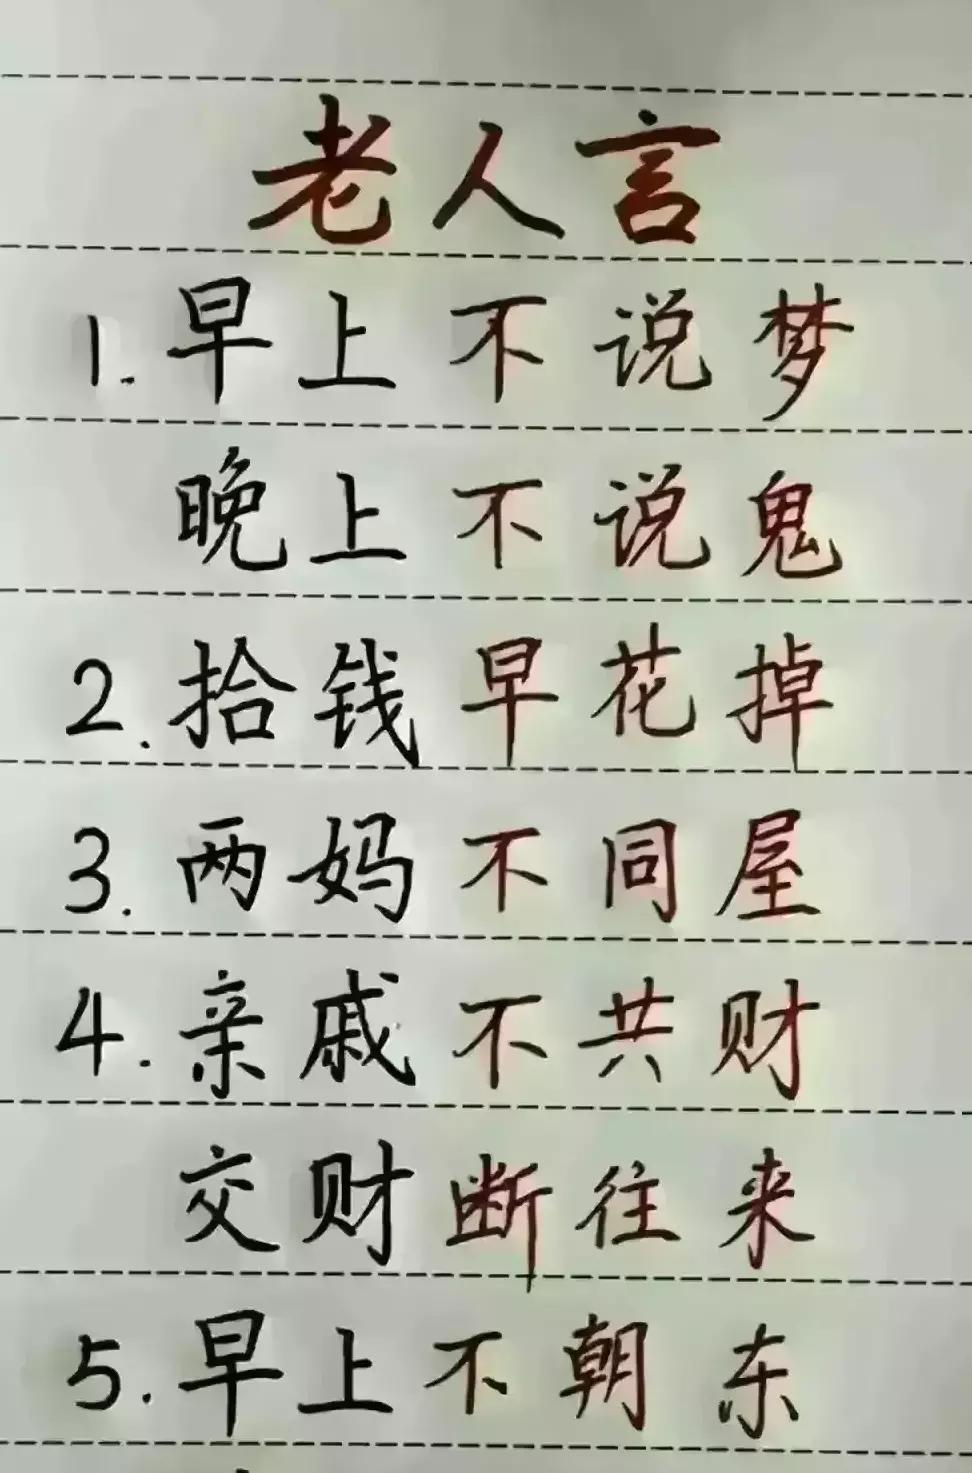 老人言
1.早上不说梦
晚上不说鬼
2.拾钱早花掉
3.两妈不同屋
4.亲戚不共财
交财断往来
5.早上不朝东